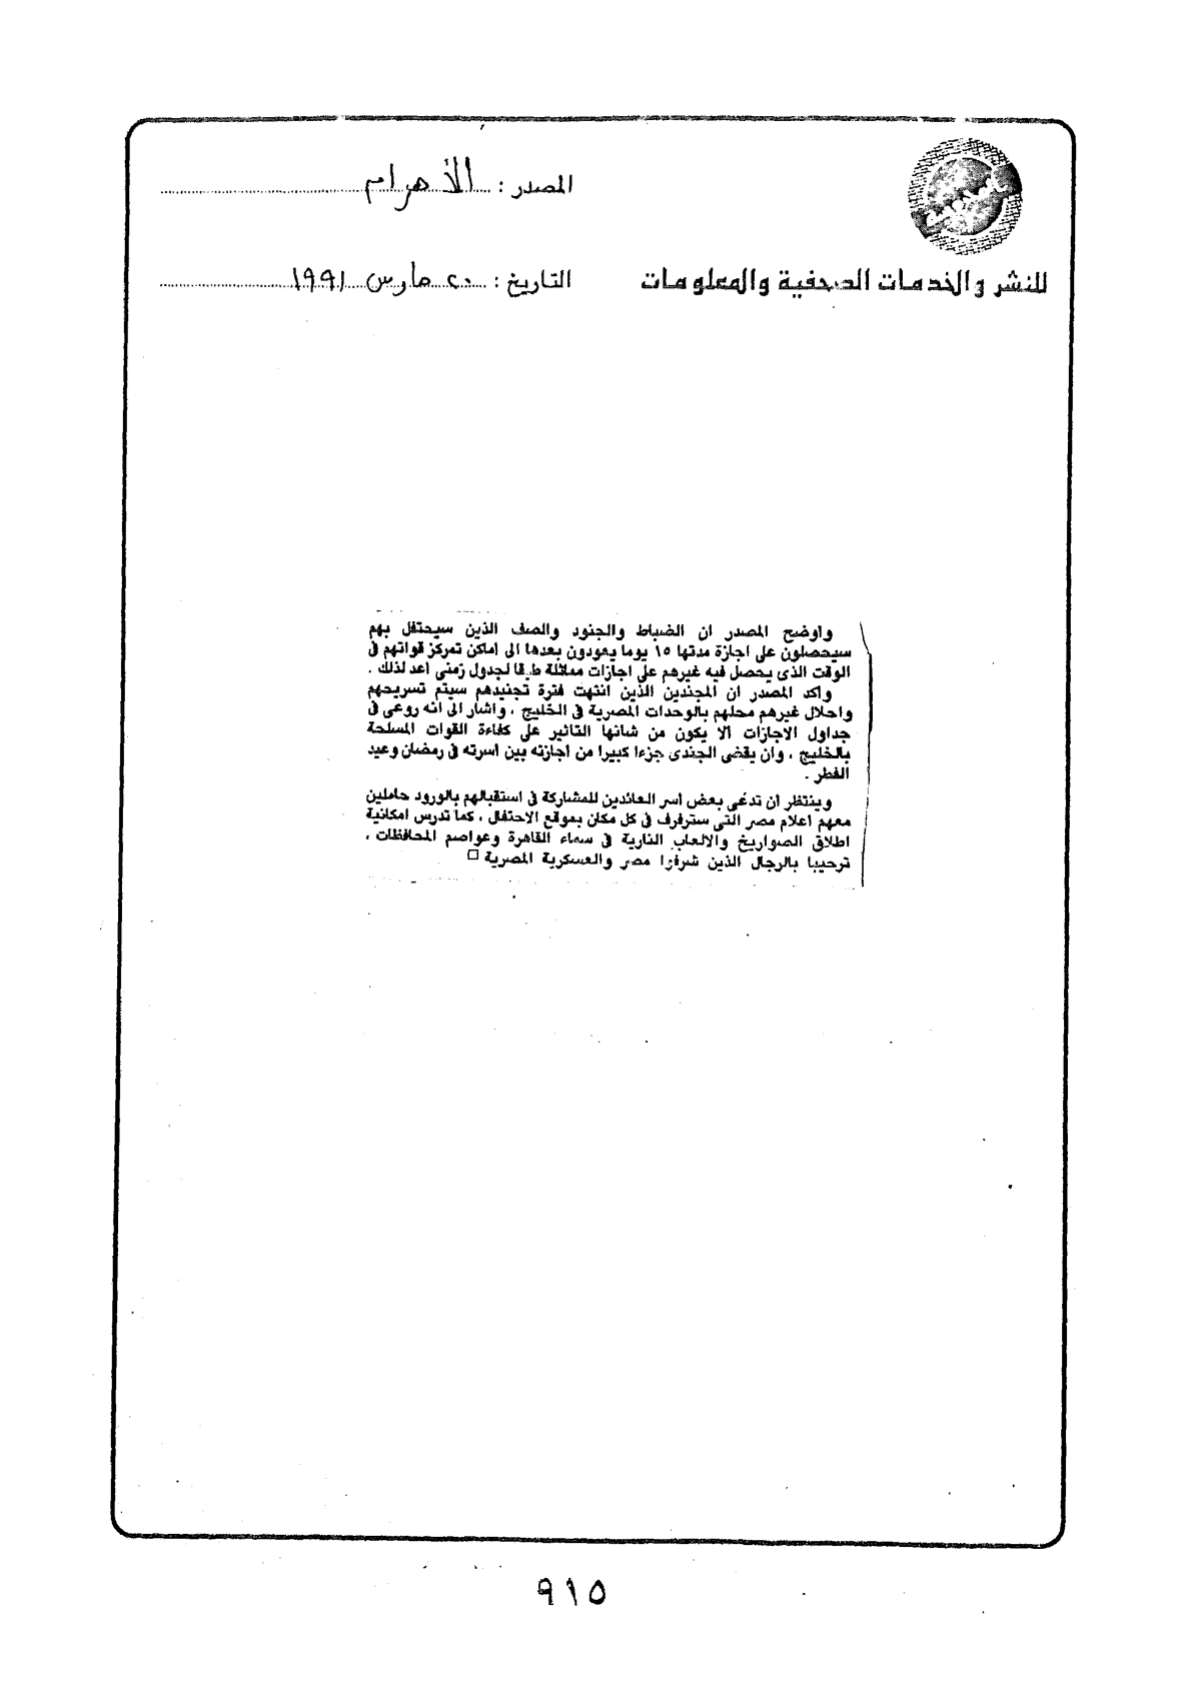 المصدر : الأهرام
للنشر والخدمات الصحفية والمعلومات
التاريخ : ٢٠ مارس ١٩٩١
واوضح المصدر ان الضباط والجنود والصف الذين سيحتفل بهم
سيحصلون على اجازة مدتها ١٥ يوما يعودون بعدها الى اماكن تمركز قواتهم فى
الوقت الذى يحصل فيه غيرهم على اجازات مماثلة طبقا لجدول زمنى اعد لذلك .
واكد المصدر ان المجندين الذين انتهت فترة تجنيدهم سيتم تسريحهم
واحلال غيرهم محلهم بالوحدات المصرية فى الخليج ، واشار الى انه روعى فى
جداول الاجازات الا يكون من شانها التاثير على كفاءة القوات المسلحة
بالخليج ، وان يقضى الجندى جزءا كبيرا من اجازته بين اسرته فى رمضان وعيد
الفطر .
وينتظر ان تدعى بعض اسر العائدين للمشاركة فى استقبالهم بالورود حاملين
معهم اعلام مصر التى سترفرف فى كل مكان بموقع الاحتفال ، كما تدرس امكانية
اطلاق الصواريخ والالعاب النارية فى سماء القاهرة وعواصم المحافظات ،
ترحيبا بالرجال الذين شرفوا مصر والعسكرية المصرية □
٩١٥